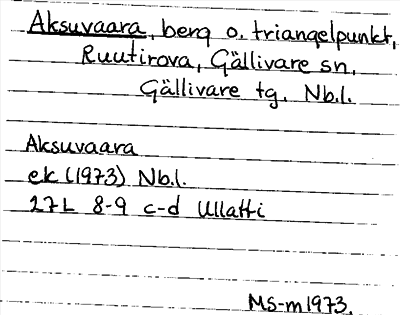 Aksuvaara, berg o. triangelpunkt,
Ruutirova, Gällivare sn,
Gällivare tg. Nb.l.
Aksuvaara
ek (1973) Nb.l.
27L 8-9 c-d Ullatti
MS-m1973.